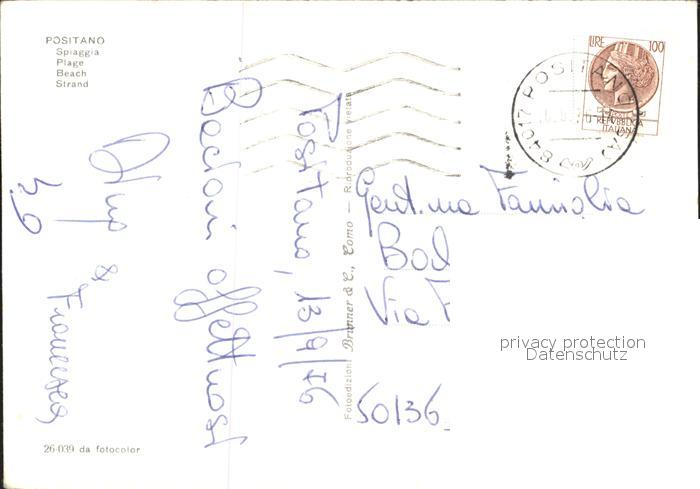 POSITANO
Spiaggia
Plage
Beach
Strand
26-039 da fotocolor
Positano, 13/9/76
Bacioni affettuosi
&
Francesca
Fotoedizioni Brunner & C., Como — Riproduzione vietata
LIRE 100
REPVBBLICA
ITALIANA
84017 POSITANO
Gent.ma Famiglia
Via F
50136
privacy protection
Datenschutz